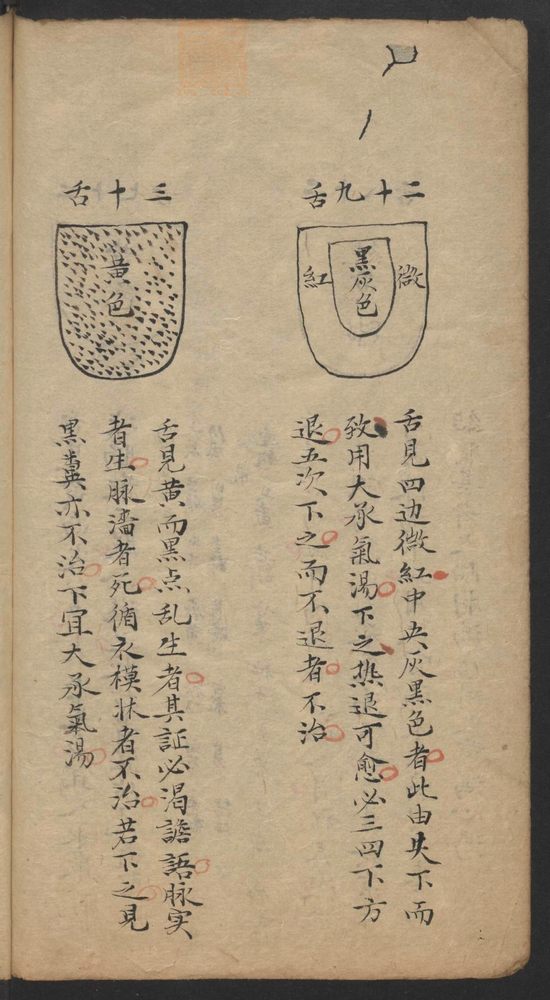 二十九舌
微
黑灰色
紅
舌見四边微紅中央灰黑色者此由失下而
致用大承氣湯下之热退可愈必三四下方
退五次下之而不退者不治
三十舌
黃色
舌見黄而黑点乱生者其証必渴譫語脉实
者生脉濇者死循衣模狀者不治若下之見
黑糞亦不治下宜大承氣湯